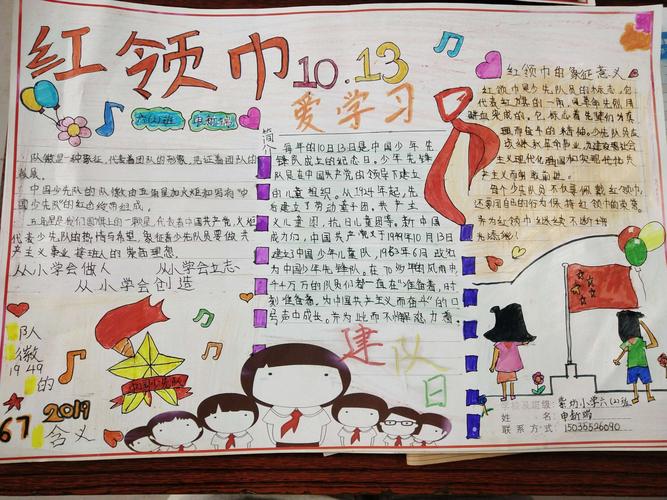 红领巾
10.13
爱学习
六(2)班
简介
队徽是一种象征,代表着团队的形象,见证着团队的
发展。
中国少先队的队徽由五角星加火炬和写有“中
国少先队”的红色绶带组成。
五角星是我们国旗上的一颗星,代表着中国共产党,火炬
代表少先队的热情与希望,象征着少先队员要做共
产主义事业接班人的崇高理想。
从小学会做人
从小学会立志
从小学会创造
队
徽
1949
的
2019
67
含义
中国少先队
每年的10月13日是中国少年先
锋队成立的纪念日。少年先锋
队员在中国共产党的领导下建立
的儿童组织。从1924年起,先
后建立了劳动童子团、共产主
义儿童团、抗日儿童团等。新中国
成立口,中国共产党于1949年10月13日
建立了中国少年儿童队,1953年6月改名
为中国少年先锋队。在70岁的风雨中,
千千万万的队员们都一直在“准备着,时
刻准备着,为中国共产主义而奋斗”的口
号声中成长。并为此而不懈努力着。
建队日
红领巾的象征意义
红领巾是少先队员的标志,它
代表红旗的一角,是革命先烈用
鲜血染成的。它,标志着先辈们为真
理而奋斗的精神。少先队员应
成继承革命事业,为建设社会
主义现代化强国和实现伟大共
产主义而努力奋斗。
每个少先队员不仅要佩戴红领巾,
还要用自己的行为保持红领巾的荣誉
并为红领巾继续不断增
光添彩!
学校及班级:
小学六(2)班
姓名:
申
联系方式:15035526090